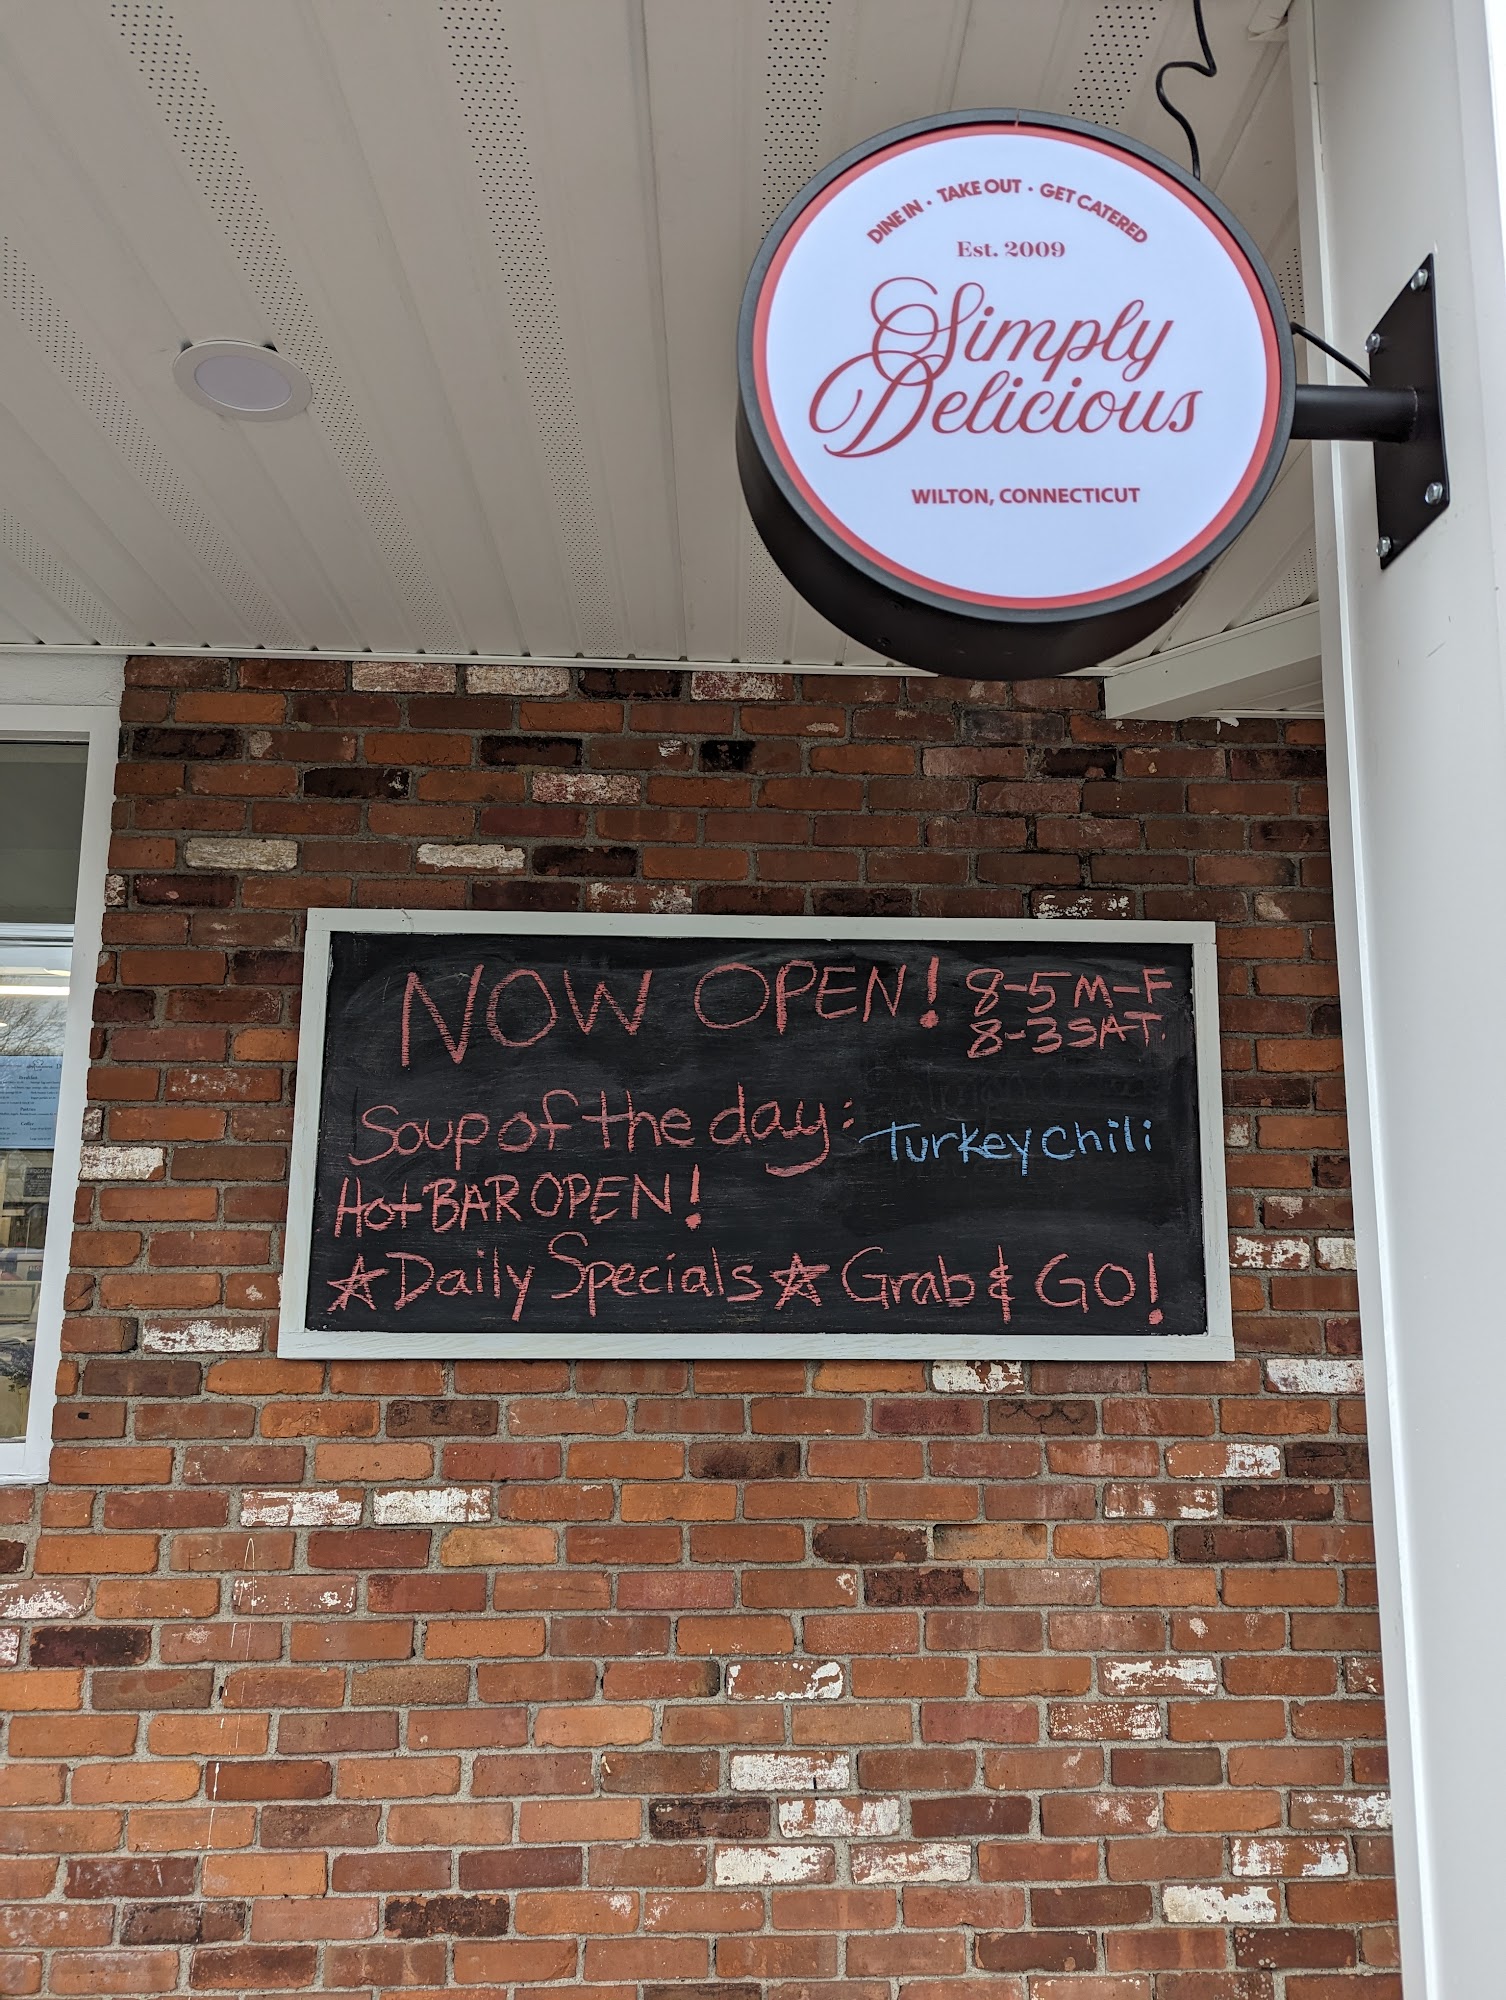 DINE IN · TAKE OUT · GET CATERED
Est. 2009
Simply
Delicious
WILTON, CONNECTICUT
NOW OPEN! 8-5 M-F
8-3 SAT.
Soup of the day: Turkey Chili
Hot BAR OPEN!
☆Daily Specials☆ Grab & GO!
Breakfast
Coffee